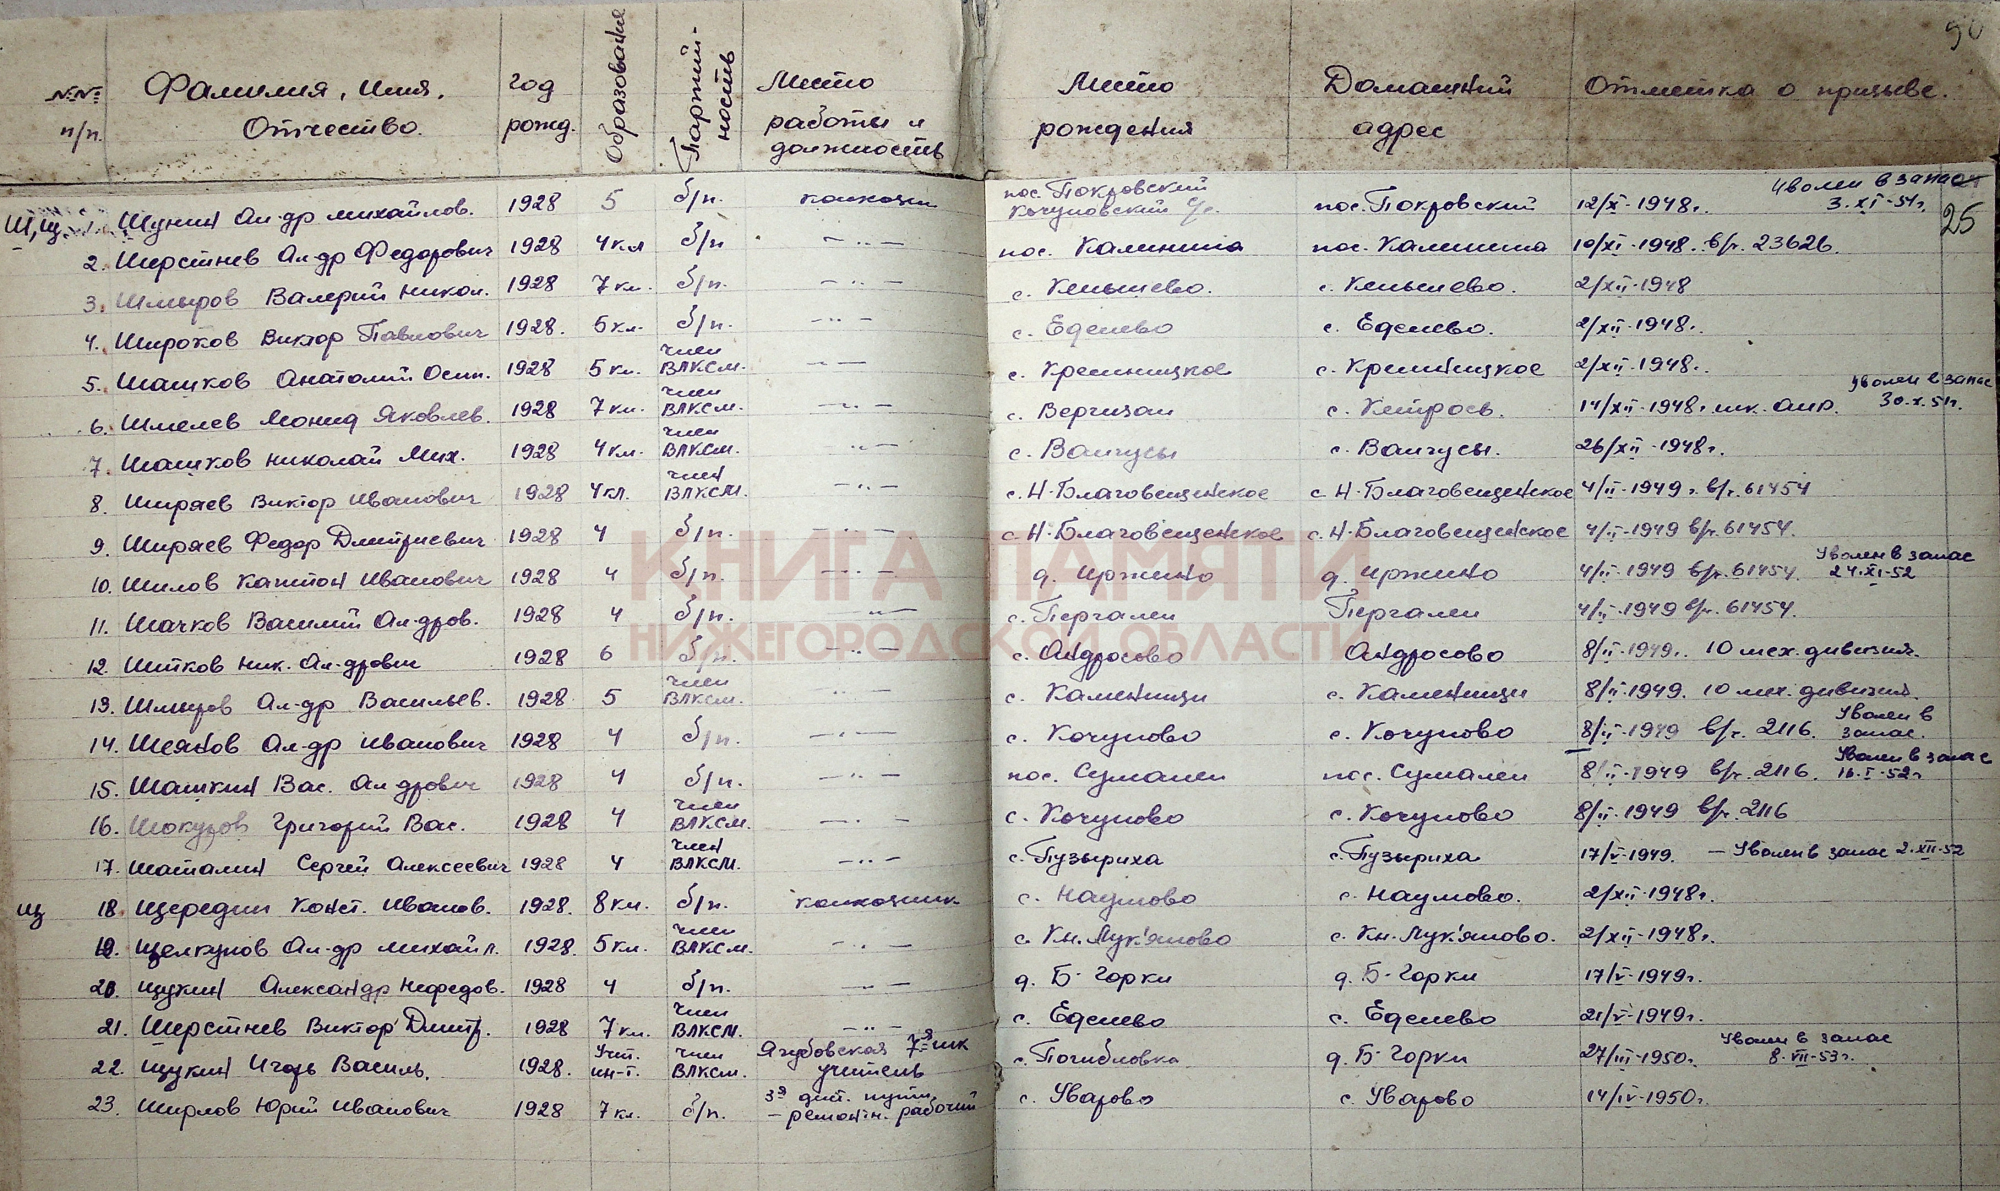 50
№№ п/п. Фамилия, Имя, Отчество. год рожд. Образование Партий-ность Место работы и должность Место рождения Домашний адрес Отметка о призыве.
25
Ш, Щ. 1. Шунин Ал-др михайлов. 1928 5 б/п. колхозник пос. Покровский Кочуновский с/с. пос. Покровский 12/X-1948г. Уволен в запас 3.XI-51г.
2. Шерстнев Ал-др Федорович 1928 4 кл б/п -"- пос. Калинина пос. Калинина 10/XI-1948. в/ч. 23626.
3. Шмыров Валерий Никол. 1928 7 кл. б/п. -"- с. Кельшево. с. Кельшево. 2/XII-1948
4. Широков Виктор Павлович 1928. 5 кл. б/п. -"- с. Еделево с. Еделево. 2/XII-1948г.
5. Шашков Анатолий Осип. 1928 5 кл. член ВЛКСМ. -"- с. Кременицкое с. Кременицкое 2/XII-1948г.
6. Шмелев Леонид Яковлев. 1928 7 кл. член ВЛКСМ. -"- с. Вергизаи с. Кетрось. 14/XII-1948г. Уволен в запас 30.X.51г.
7. Шашков николай Мих. 1928 4 кл. член ВЛКСМ. -"- с. Валгусы с. Валгусы. 26/XII-1948г.
8. Ширяев Виктор Иванович 1928 4 кл. член ВЛКСМ. -"- с. Н-Благовещенское с. Н-Благовещенское 4/II-1949г. в/ч. 61454
9. Ширяев Федор Дмитриевич 1928 4 б/п. -"- с. Н-Благовещенское с. Н-Благовещенское 4/II-1949 в/ч. 61454.
КНИГА ПАМЯТИ
10. Шилов Капитон Иванович 1928 4 б/п. -"- д. Иржино д. Иржино 4/II-1949 в/ч. 61454. Уволен в запас 24.XI-52
11. Шачков Василий Ал-дров. 1928 4 б/п. -"- с. Пергалеи Пергалеи 4/II-1949 в/ч. 61454.
НИЖЕГОРОДСКОЙ ОБЛАСТИ
12. Шитков Ник. Ал-дрович 1928 6 б/п. -"- с. Андросово Андросово 8/II-1949г. 10 мех. дивизия.
13. Шмыров Ал-др Васильев. 1928 5 член ВЛКСМ. -"- с. Каменищи с. Каменищи 8/II-1949. 10 мех. дивизия.
14. Шеянов Ал-др Иванович 1928 4 б/п. -"- с. Кочуново с. Кочуново 8/II-1949 в/ч. 2116. Уволен в запас.
15. Шашкин Вас. Ал дрович 1928 4 б/п. -"- пос. Сумалеи пос. Сумалеи 8/II-1949 в/ч. 2116. Уволен в запас 16.I-52г
16. Шокуров Григорий Вас. 1928 4 член ВЛКСМ. -"- с. Кочуново с. Кочуново 8/II-1949 в/ч. 2116
17. Шаталин Сергей Алексеевич 1928 4 член ВЛКСМ. -"- с. Пузыриха с. Пузыриха 17/V-1949. - Уволен в запас 2.XII-52
Щ 18. Щередин Конст. Иванов. 1928. 8 кл. б/п. колхозник с. Наумово с. Наумово. 2/XII-1948г.
19. Щелкунов Ал-др михайл. 1928. 5 кл. член ВЛКСМ. -"- с. Кн. Лук'яново с. Кн. Лук'яново. 2/XII-1948г.
20. Щукин Александр Нефедов. 1928 4 б/п. -"- д. Б-Горки д. Б-Горки 17/V-1949г.
21. Шерстнев Виктор Дмитр. 1928 7 кл. член ВЛКСМ. -"- с. Еделево с. Еделево 21/V-1949г.
22. Щукин Игорь Василь. 1928. Учит. ин-т. член ВЛКСМ. Ягубовская 7-я шк учитель с. Погибловка д. Б-Горки 27/III-1950г. Уволен в запас 8.VII-53г.
23. Ширлов Юрий Иванович 1928 7 кл. б/п. 3я дист. пути - ремонтн. рабочий с. Уварово с. Уварово 14/IV-1950г.